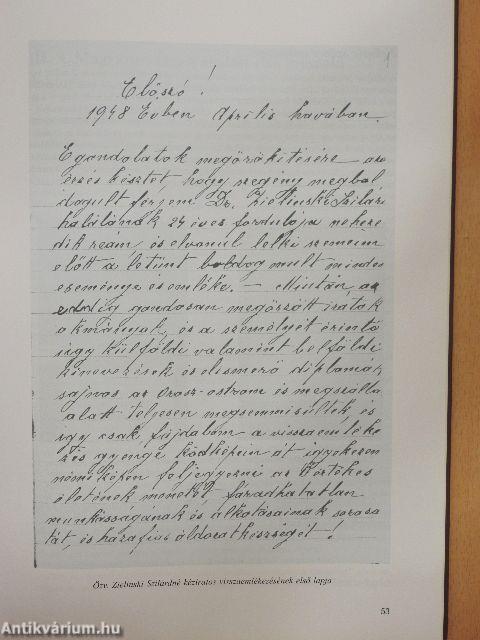 1
Előszó!
1948 Évben Április havában.
E gondolatok megörökitésére az
érzés késztet, hogy szegény megbol
dogult férjem Dr. Zielinski Szilárd
halálának 24 éves fordulója neheze
dik reám és elvonul lelki szemeim
előtt a letünt boldog mult minden
eseménye és emléke. – Miután, az
eddig gondosan megőrzött iratok
okmányok, és a személyét érintő
úgy külföldi valamint belföldi
kinevezések és elismerő diplomák,
sajnos az Orosz-ostrom és megszállás
alatt teljesen megsemmisültek, és
igy csak, fájdalom a visszaemléke
zés gyenge ködképein át igyekezem
némiképen feljegyezni az Értékes
életének menetét, fáradhatatlan
munkásságának és alkotásainak soroza
tát, és hazafias áldozatkészségét!
Özv. Zielinski Szilárdné kéziratos visszaemlékezésének első lapja
53
Antikvárium.hu